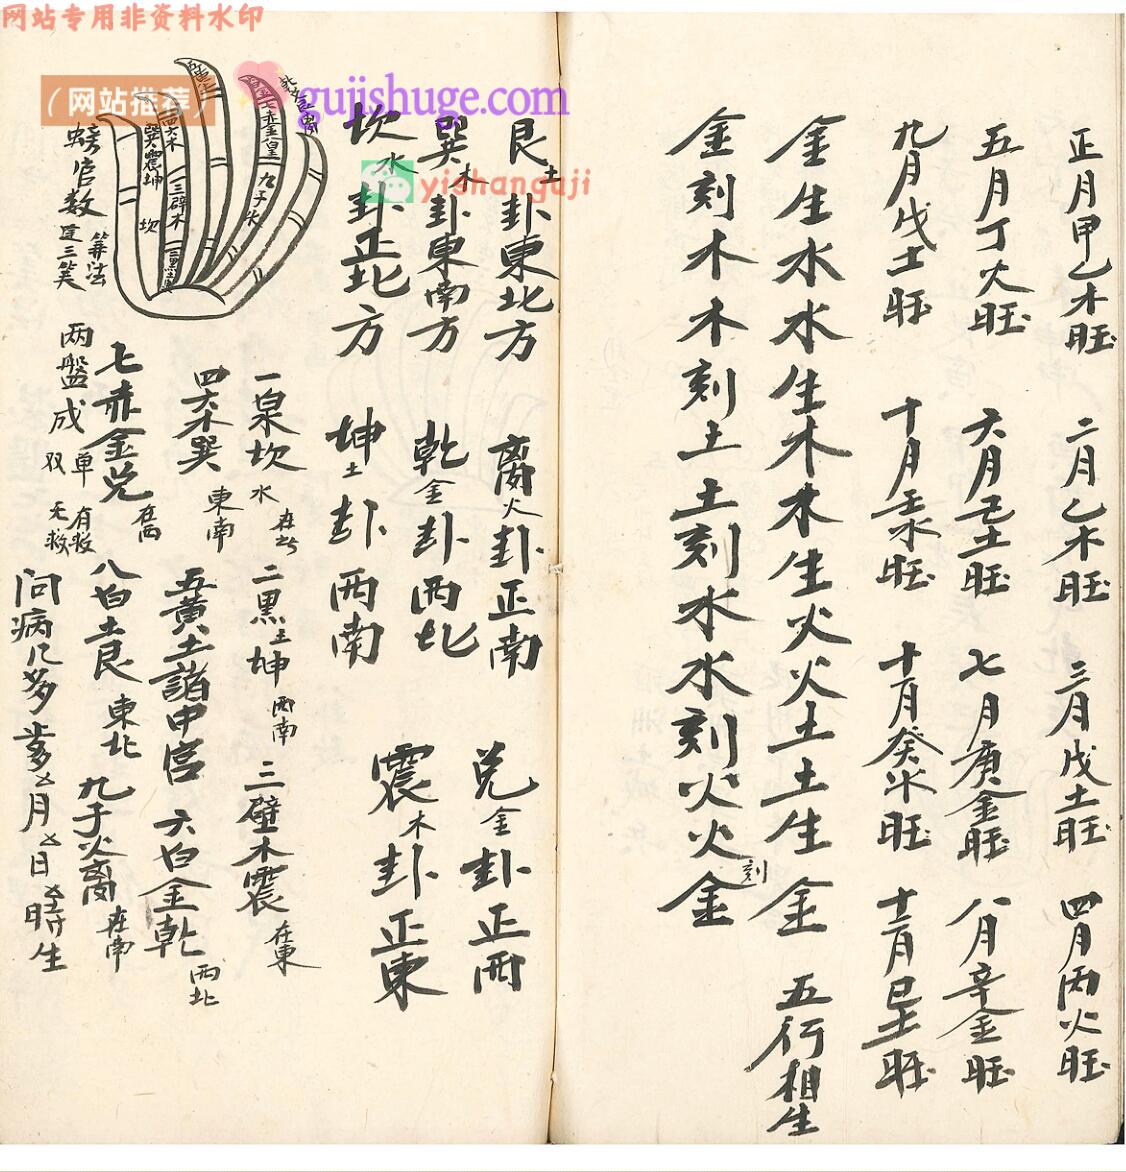 网站专用非资料水印
(网站推荐)
gujishuge.com
yishanguji
正月甲乙木旺 二月乙木旺 三月戊土旺 四月丙火旺
五月丁火旺 六月己土旺 七月庚金旺 八月辛金旺
九月戊土旺 十月壬水旺 十一月癸水旺 十二月己土旺
金生水水生木木生火火土土生金 五行相生
金刻木木刻土土刻水水刻火火刻金
艮土卦東北方 离火卦正南 兑金卦正西
巽木卦東南方 乾金卦西北 震木卦正東
坎水卦正北方 坤土卦西南
一白泉坎水在北 二黑土坤西南 三壁木震在東
四六木巽東南 五黄土諸中宫 六白金乾西北
七赤金兑在西 八白土艮東北 九子火离在南
官数 算法
两盘成双单 有救 无救
问病几多岁㐅月㐅日㐅時生
巽震坤 坎
四六木 三壁木 二黑土
九子火